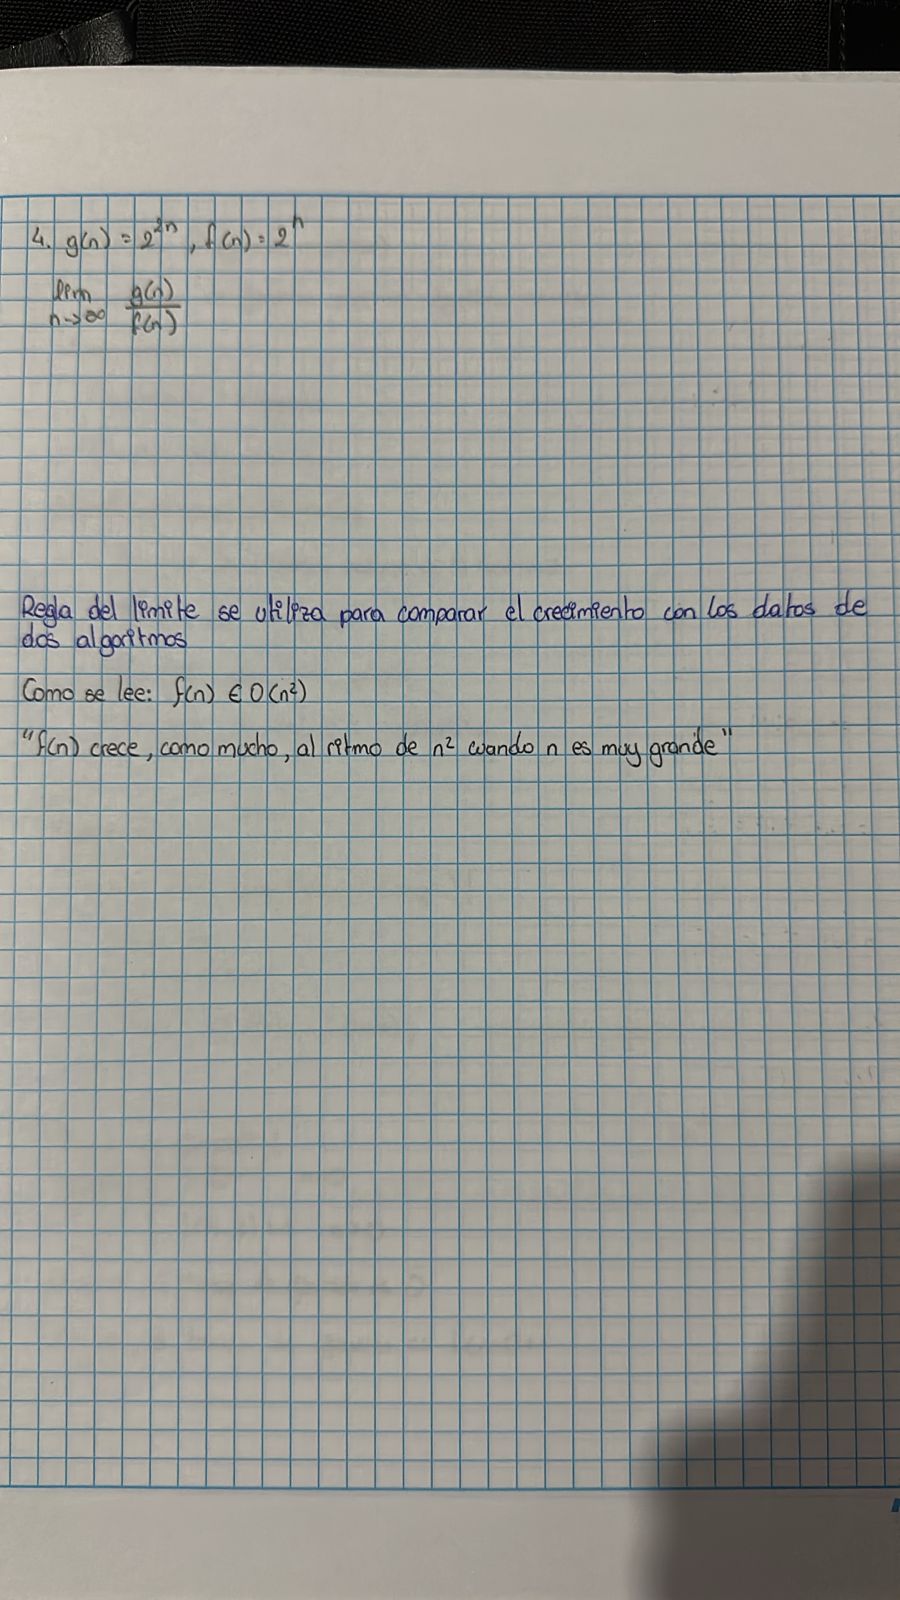 4. g(n) = 2^{2n}, f(n) = 2^n
lim n->∞ g(n)/f(n)
Regla del límite se utiliza para comparar el crecimiento con los datos de
dos algoritmos
Como se lee: f(n) ∈ O(n²)
"f(n) crece, como mucho, al ritmo de n² cuando n es muy grande"